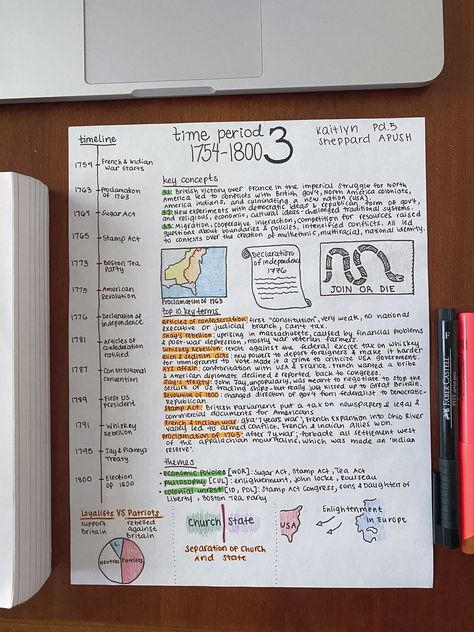 timeline
time period 3
1754-1800
Kaitlyn Pd.5
Sheppard APUSH
1754 French & Indian
War starts
1763 Proclamation
of 1763
1764 Sugar Act
1765 Stamp Act
1773 Boston Tea
Party
1775 American
Revolution
1776 Declaration of
Independence
1781 Articles of
Confederation
ratified
1787 Constitutional
Convention
1789 First US
President
1791 Whiskey
Rebellion
1795 Jay & Pinckney's
Treaty
1800 Election
of 1800
key concepts
3.1: British victory over France in the imperial struggle for North
America led to conflicts with British gov't, North America colonists,
America Indians, and culminating a new nation (USA).
3.2: New experiments with democratic ideas & republican form of gov't,
and religious, economic, cultural ideas - challenged traditional systems.
3.3: Migration, cooperative interaction, competition for resources raised
questions about boundaries & policies, intensified conflicts. All led
to contests over the creation of multiethnic, multiracial, national identity.
Proclamation of 1763
Declaration
of independence
1776
JOIN OR DIE
top 10 key terms
articles of confederation: first "constitution", very weak, no national
executive or judicial branch, can't tax.
Shay's rebellion: uprising in massachusets, caused by financial problems
& post-war depression, mostly war veteran farmers.
Whiskey Rebellion: revolt against the federal excise tax on whiskey
Alien & sedition acts: new powers to deport foreigners & made it harder
for immigrants to vote. Made it a crime to criticize USA government.
XYZ affair: confrontation with USA & France. French wanted a bribe
& American diplomats declined & reported back to congress.
Jay's treaty: John Jay, unpopularly, was meant to negotiate to stop the
seizure of US trading ships - but really just kissed up to Great Britain.
Revolution of 1800: changed direction of gov't from federalist to democratic-
Republican.
Stamp Act: British parliament put a tax on newspapers & legal &
commercial documents for Americans
French & Indian war: aka '7 years war'; French expansion into Ohio River
valley led to armed conflict. French & Indian allies won.
Proclamation of 1763: after 7y war; forbade all settlement west
of the appalachian mountains, which was made an 'indian
reserve'.
themes
• economic policies [WOR]: Sugar Act, Stamp Act, Tea Act
• philosophy [CUL]: enlightenment, John Locke, Rousseau
• colonial unrest [ID, POL]: Stamp Act Congress, sons & Daughter of
Liberty, Boston Tea Party
Loyalists VS Patriots
support
Britain
rebelled
against
Britain
Neutral
Patriots
Church State
separation of church
and state
USA
Enlightenment
in Europe
FABER-CASTELL